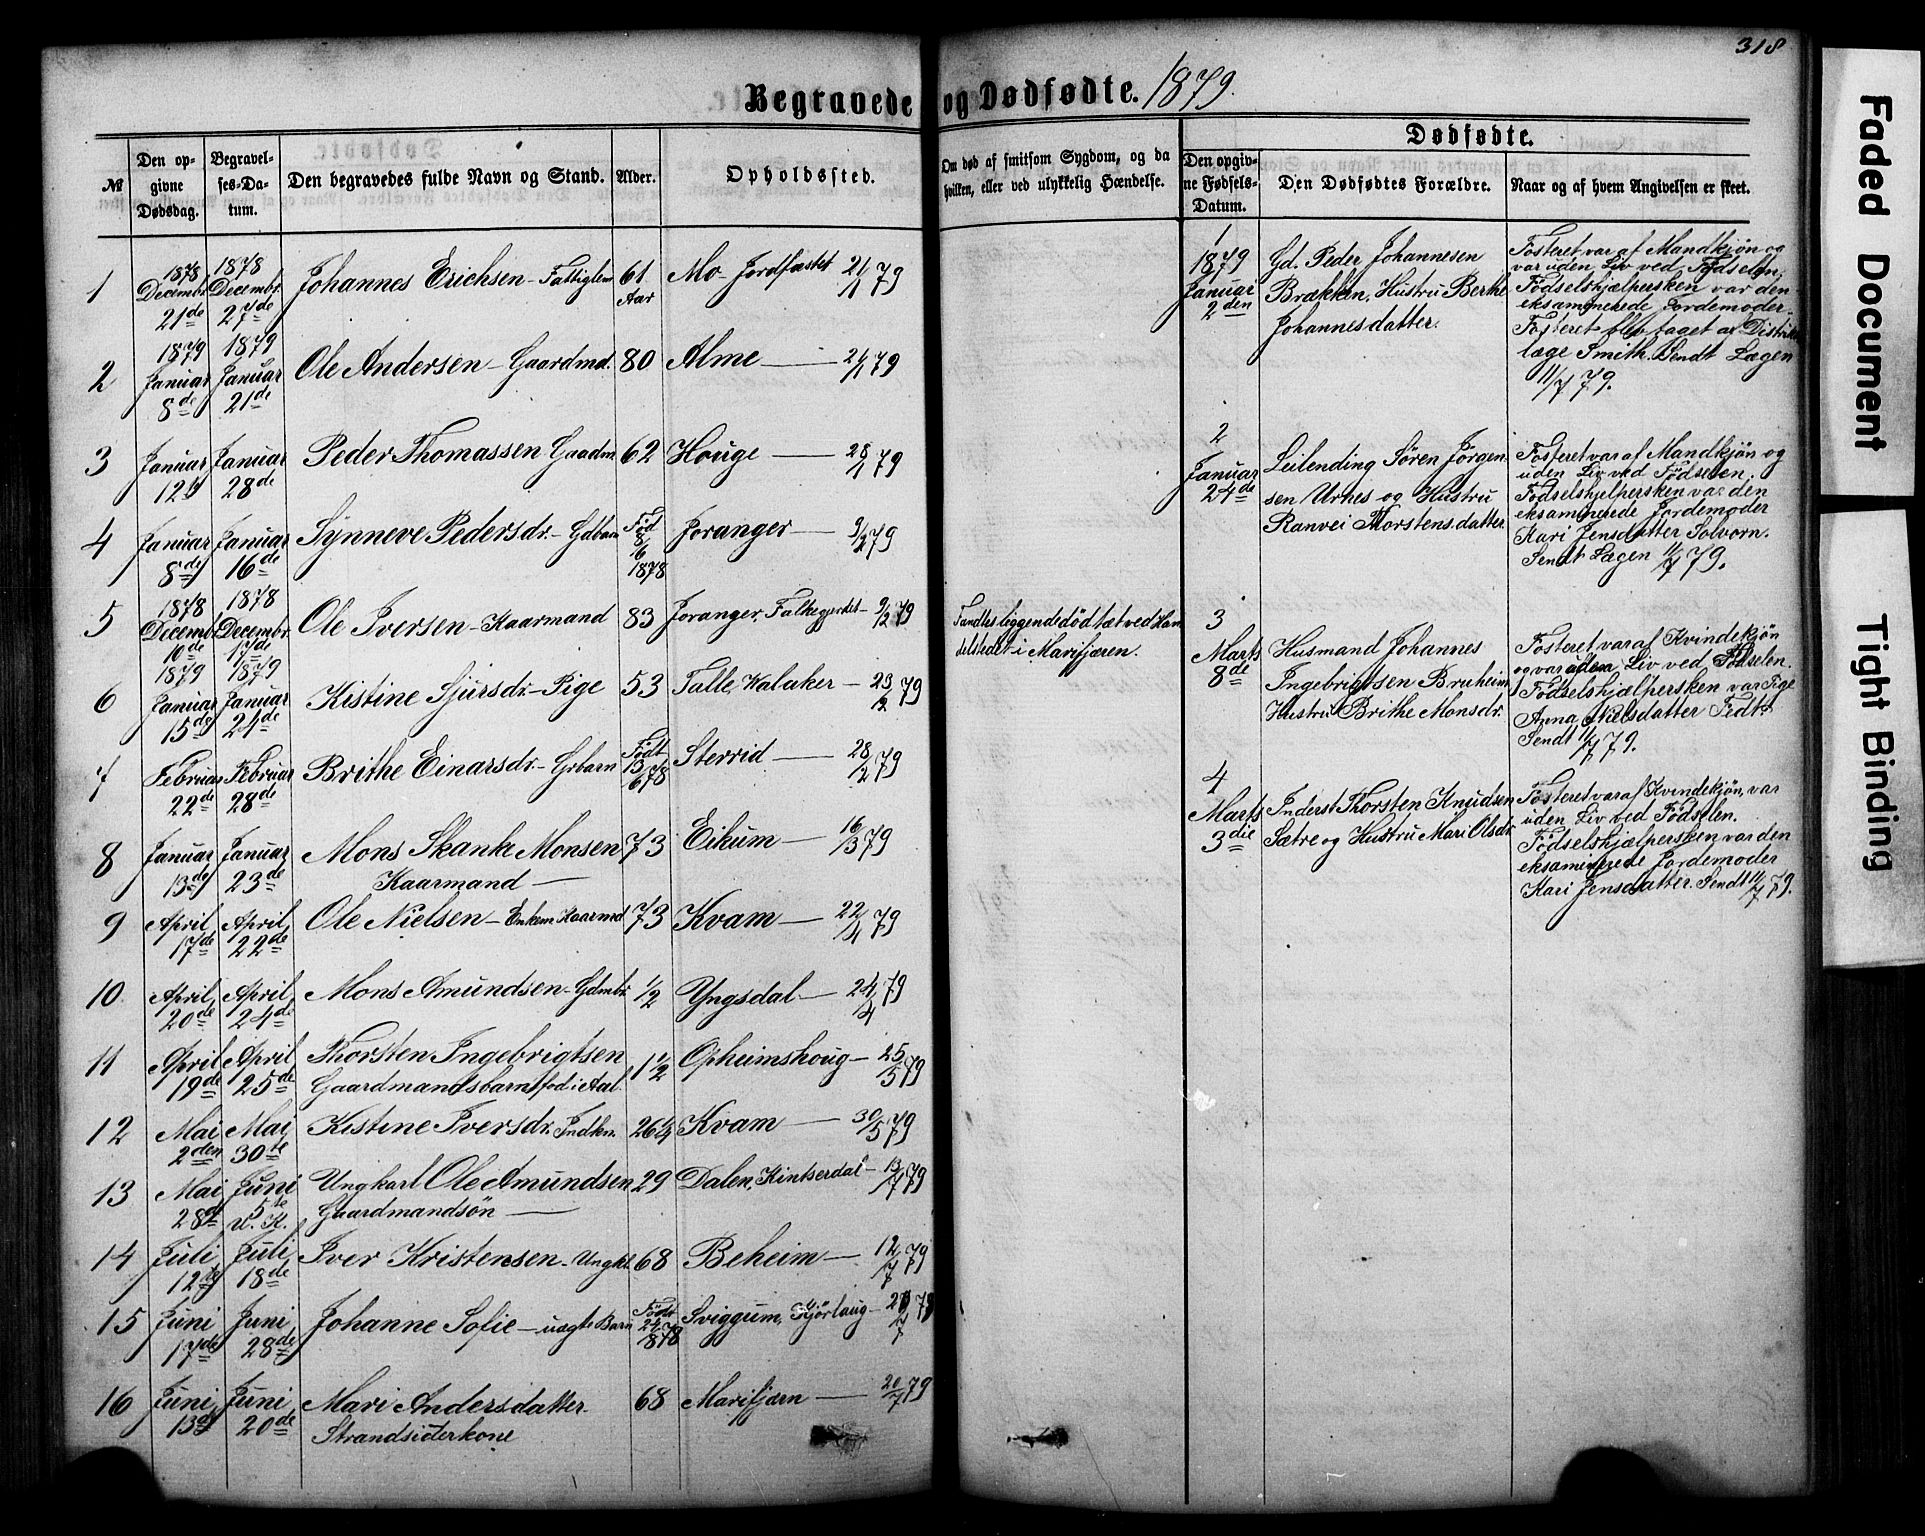 318
Begravede og Dødfødte. 1879.
№
Den opgivne Dødsdag.
Begravelses-Datum.
Den begravedes fulde Navn og Stand.
Alder.
Opholdssted.
Om død af smitsom Sygdom, og da hvilken, eller ved ulykkelig Hændelse.
Dødfødte.
Den opgivne Fødsels-Datum.
Den Dødfødtes Forældre.
Naar og af hvem Angivelsen er skeet.
1 1878 Decembr. 21de 1878 Decembr. 27de Johannes Erichsen - Fattiglem 61 Aar Mo - Jordfæstet 21/1 79
2 1879 Januar 8de 1879 Januar 21de Ole Andersen - Gaardmd. 80 Alme — 21/1 79
3 Januar 12te Januar 28de Peder Thomassen Gaadm 62 Houge — 28/1 79
4 Januar 8de Januar 16de Synneve Pedersdr. - Gdbarn Fød 8/6 1878 Joranger — 9/2 79
5 1878 Decembr. 10de 1878 Decembr. 17de Ole Iversen - Kaarmand 83 Joranger, Falkegjerdet - 9/2 79
Fandtes liggende død tæt ved Handelstedet i Marifjæren.
6 1879 Januar 15de 1879 Januar 24de Kistine Sjursdr. - Pige 53 Talle, Kalaker - 23/2 79
7 Februar 22de Februar 28de Brithe Einarsdr. - Grbarn Født 13/6 78 Sterrid — 28/2 79
8 Januar 13de Januar 23de Mons Skank Monsen 73 Eikum — 16/3 79
Kaarmand —
9 April 17de April 22de Ole Nielsen - Enkem. Kaarmd 73 Kvam — 22/4 79
10 April 20de April 24de Mons Amundsen - Gdmbr. 1/2 Yngsdal — 24/4 79
11 April 19de April 25de Thorsten Ingebrigtsen 1 1/2 Opheimshoug - 25/5 79
Gaardmandsbarn fød i Aal.
12 Mai 2den Mai 30te Kistine Iversdr. Indkn. 26 1/4 Kvam — 30/5 79
13 Mai 28de Juni 5te U. K. Ungkarl Ole Amundsen 29 Dalen, Kintserdal - 13/7 79
Gaardmandsøn —
14 Juli 12te Juli 18de Iver Kristensen - Ungkl. 68 Beheim — 12/7 79
15 Juni 17de Juni 28de Johanne Sofie - uægte Barn Født 24/8 78 Sviggum, Kjørlaug - /7 79
16 Juni 13de Juni 20de Mari Andersdatter 68 Marifjæren — 20/7 79
Strandsiderkone
1
1879 Januar 2den
Gd. Peder Johannesen
Brækken, Hustru Berthe
Johannesdatter.
Fosteret var af Mandkjøn og
var uden Liv ved Fødselen,
Fødselshjælpersken var den
eksaminerede Jordemoder.
Fosteret blev taget af Distrikts
læge Smith. Sendt Lægen
11/7 79.
2
Januar 24de
Leilending Søren Jørgen
sen Urnes og Hustru
Ranvei Thorstensdatter
Fosteret var af Mandkjøn og
uden Liv ved Fødselen.
Fødselshjelpersken var den
eksaminerede Jordemoder
Kari Jensdatter Solvorn.
Sendt Lægen 11/7 79.
3
Marts 8de
Husmand Johannes
Ingebrigtsen Bruheim
Hustru Brithe Monsdr.
Fosteret var af Kvindekjøn
og var uden Liv ved Fødselen.
Fødselshjælpersken var Pige
Anna Nielsdatter Fedt.
Sendt 11/7 79.
4
Marts 3die
Inderst Thorsten Knudsen
Sætre og Hustru Mari Olsdr.
Fosteret var af Kvindekjøn, var
uden Liv ved Fødselen.
Fødselshjælpersken var den
eksaminerede Jordemoder
Kari Jensdatter. Sendt 11/7 79.
Faded Document
Tight Binding